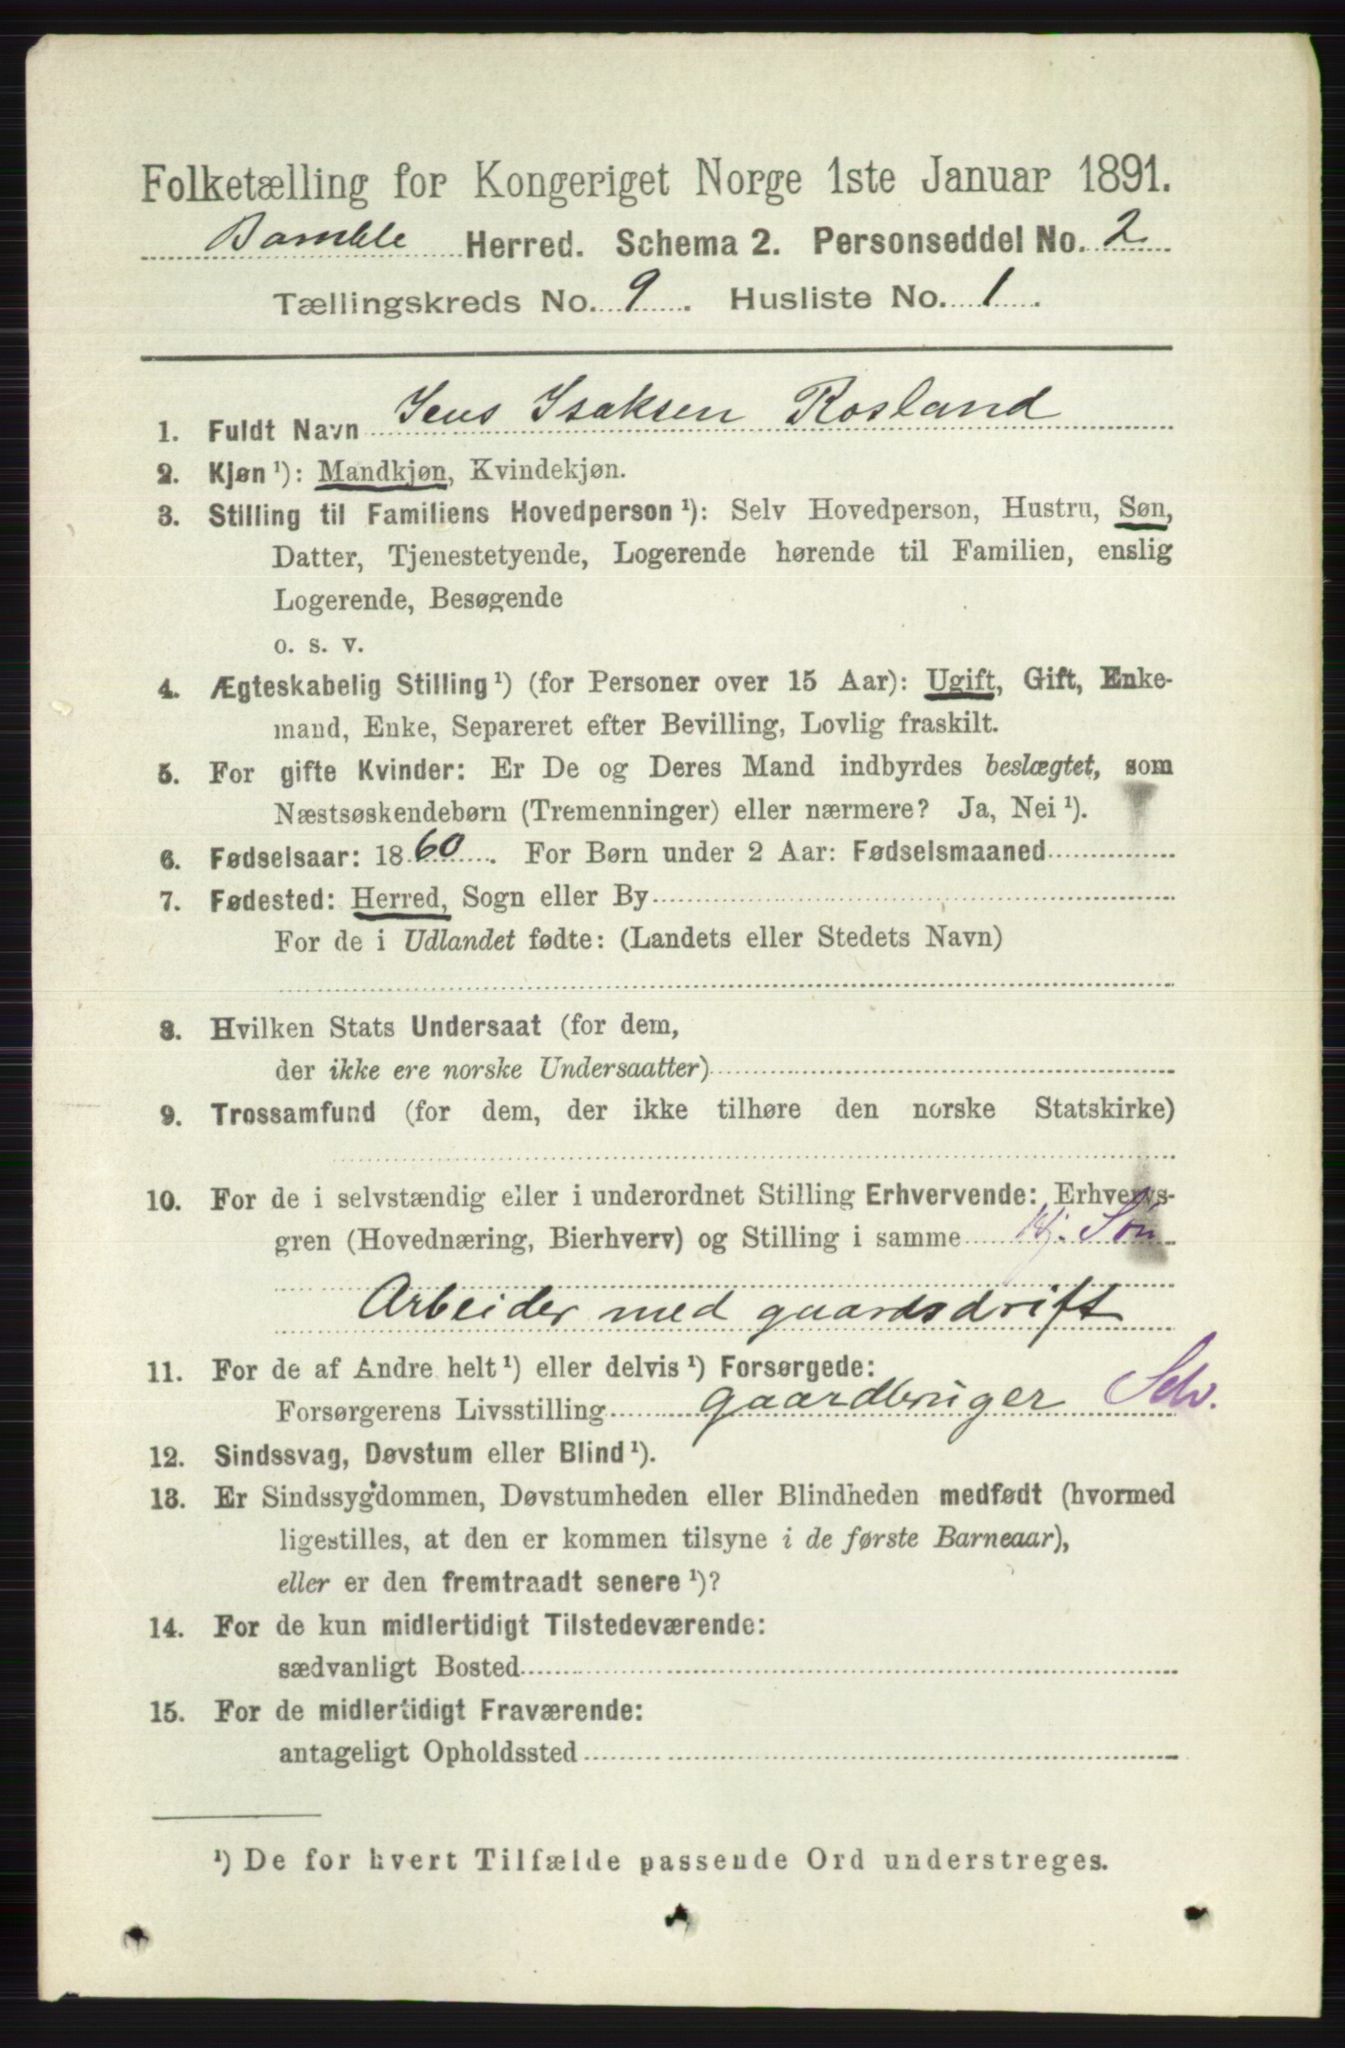 Folketælling for Kongeriget Norge 1ste Januar 1891.
Bamble Herred. Schema 2. Personseddel No. 2
Tællingskreds No. 9. Husliste No. 1.
1. Fuldt Navn Jens Isaksen Rosland
2. Kjøn ¹): Mandkjøn, Kvindekjøn.
3. Stilling til Familiens Hovedperson ¹): Selv Hovedperson, Hustru, Søn,
Datter, Tjenestetyende, Logerende hørende til Familien, enslig
Logerende, Besøgende
o. s. v.
4. Ægteskabelig Stilling ¹) (for Personer over 15 Aar): Ugift, Gift, Enke-
mand, Enke, Separeret efter Bevilling, Lovlig fraskilt.
5. For gifte Kvinder: Er De og Deres Mand indbyrdes beslægtet, som
Næstsøskendebørn (Tremenninger) eller nærmere? Ja, Nei ¹).
6. Fødselsaar: 1860. For Børn under 2 Aar: Fødselsmaaned
7. Fødested: Herred, Sogn eller By
For de i Udlandet fødte: (Landets eller Stedets Navn)
8. Hvilken Stats Undersaat (for dem,
der ikke ere norske Undersaatter)
9. Trossamfund (for dem, der ikke tilhøre den norske Statskirke)
10. For de i selvstændig eller i underordnet Stilling Erhvervende: Erhvervs-
gren (Hovednæring, Bierhverv) og Stilling i samme Hj. Søn
Arbeider med gaardsdrift
11. For de af Andre helt ¹) eller delvis ¹) Forsørgede:
Forsørgerens Livsstilling gaardbruger Selv.
12. Sindssvag, Døvstum eller Blind ¹).
13. Er Sindssygdommen, Døvstumheden eller Blindheden medfødt (hvormed
ligestilles, at den er kommen tilsyne i de første Barneaar),
eller er den fremtraadt senere ¹)?
14. For de kun midlertidigt Tilstedeværende:
sædvanligt Bosted
15. For de midlertidigt Fraværende:
antageligt Opholdssted
¹) De for hvert Tilfælde passende Ord understreges.